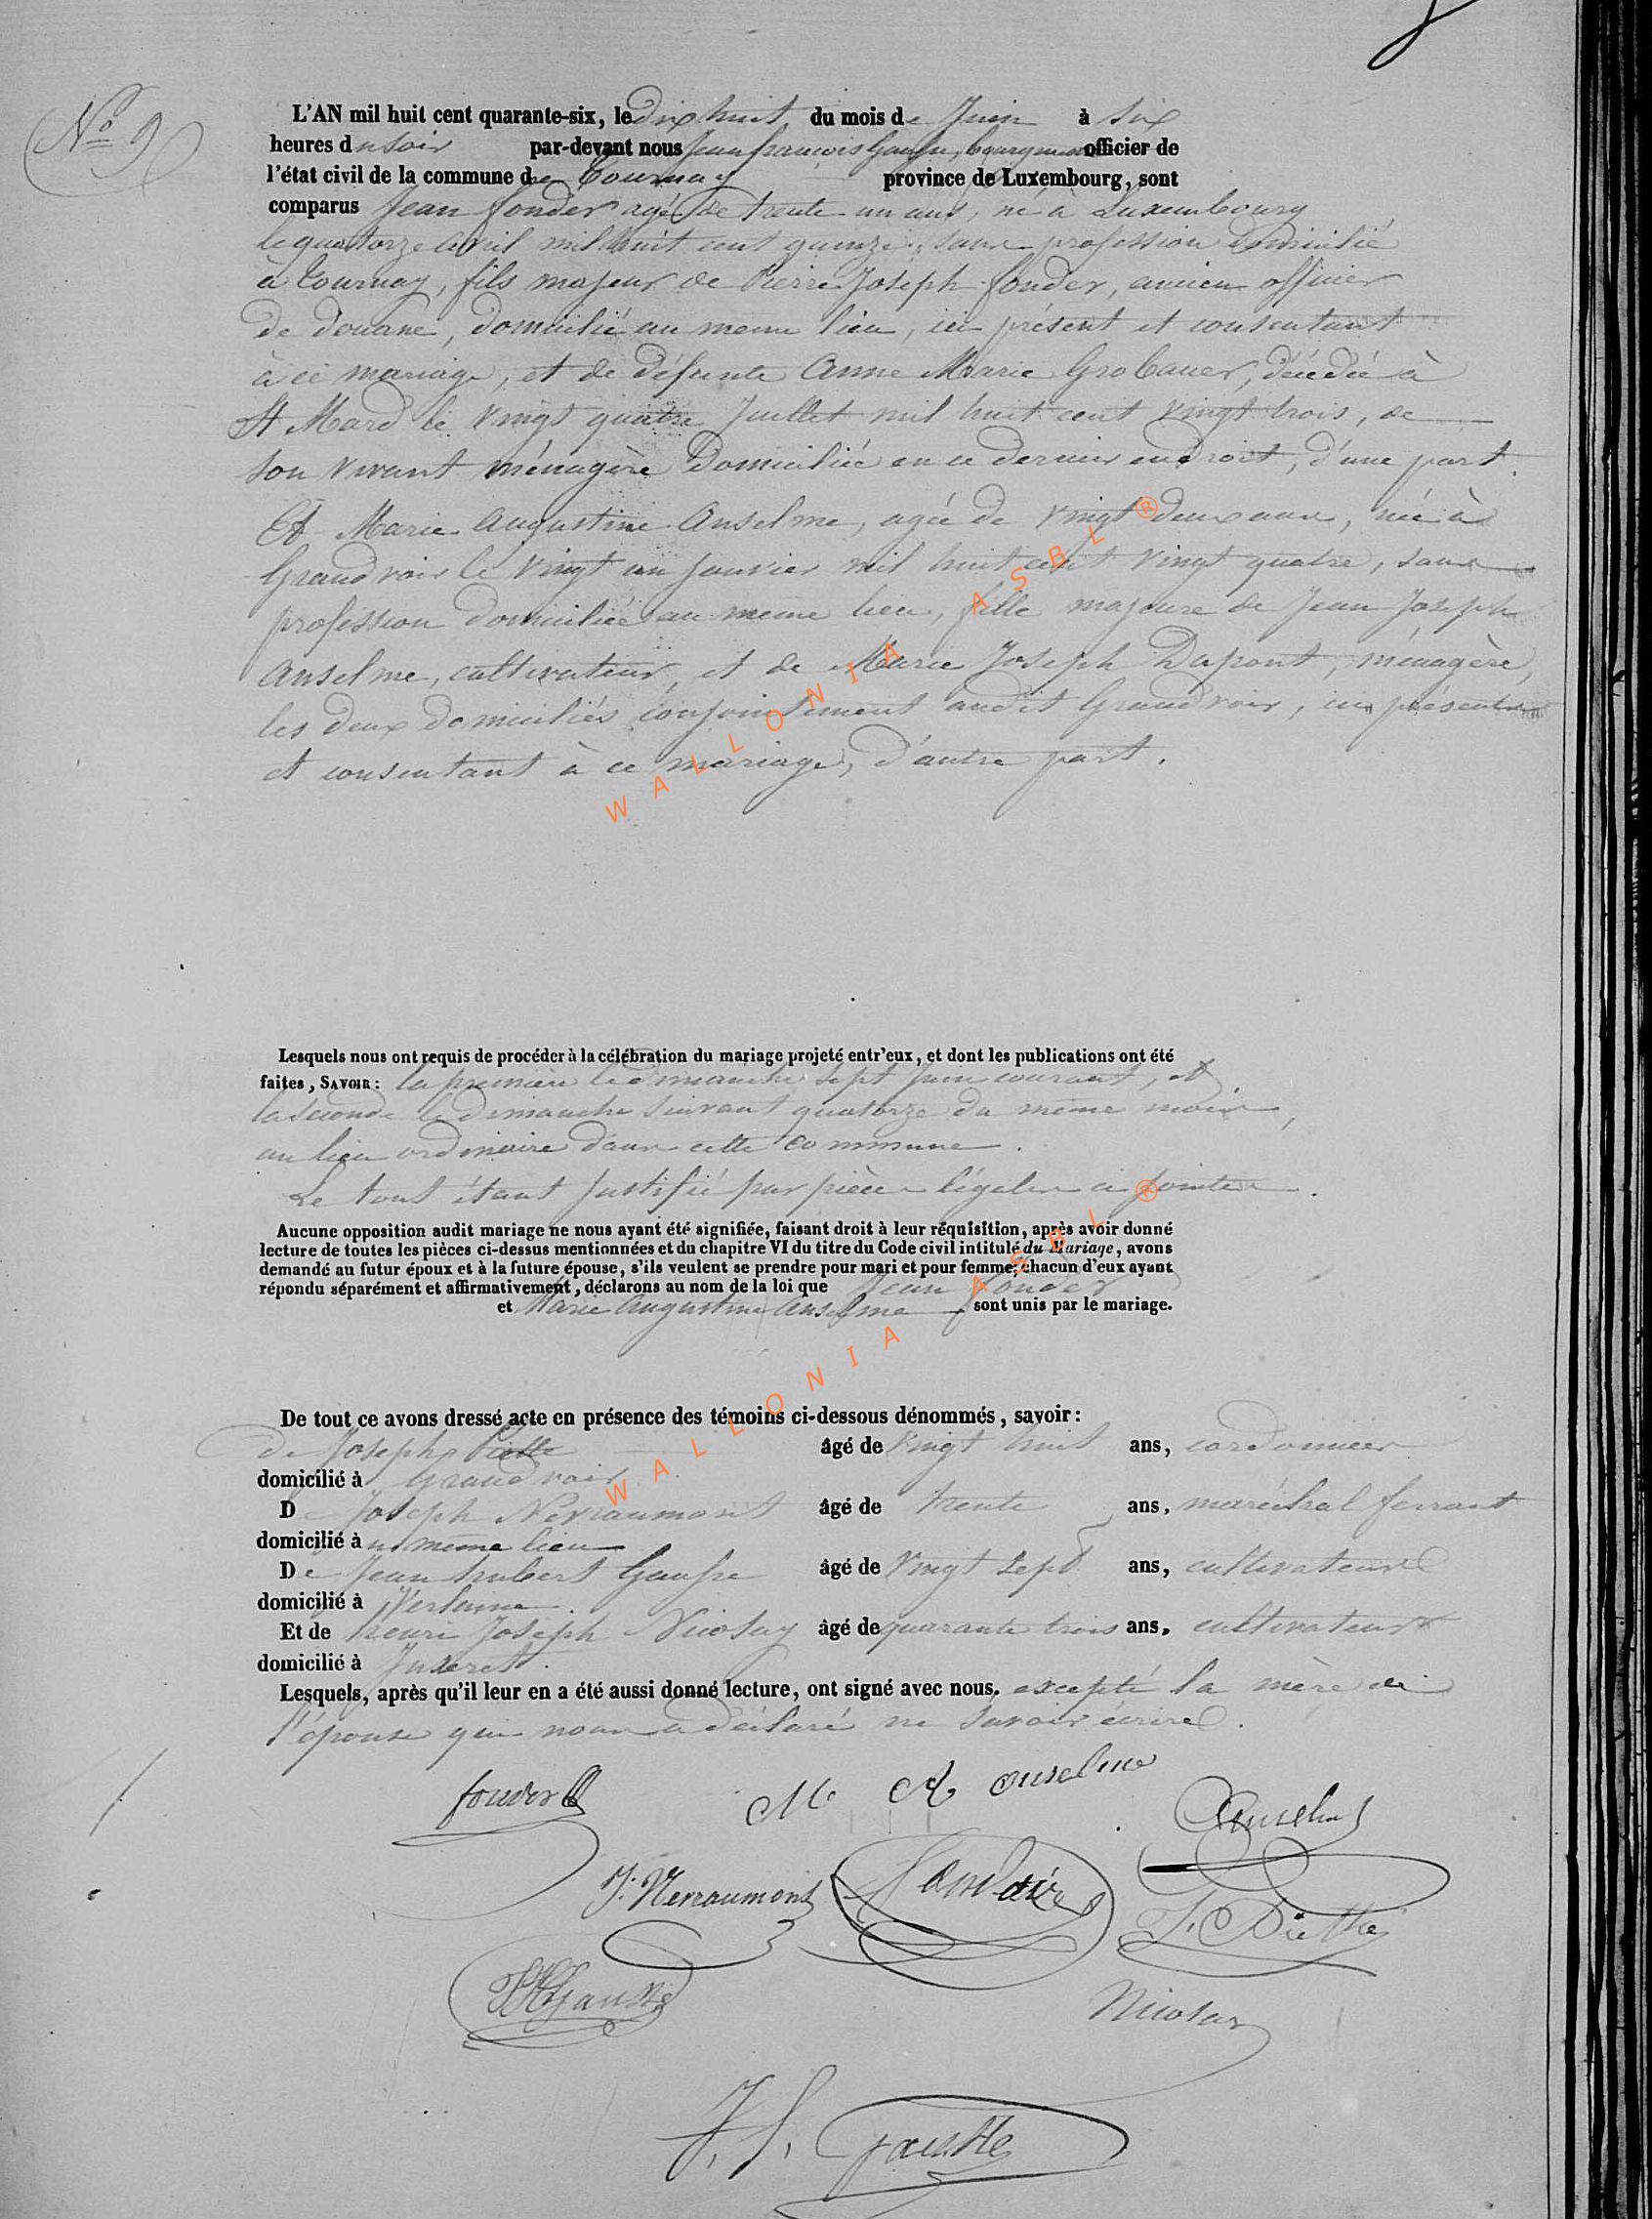 No 9
L'AN mil huit cent quarante-six, le dix huit du mois de Juin à six
heures du soir par-devant nous Jean françois Gausse, bourgmestre officier de
l'état civil de la commune de Tournay province de Luxembourg, sont
comparus Jean fonder agé de trente un ans, né à Luxembourg
le quatorze avril mil huit cent quinze, sans profession domicilié
à Tournay, fils majeur de Pierre Joseph fonder, ancien officier
de douane, domicilié au meme lieu, ici présent et consentant
à ce mariage, et de défunte Anne Marie Grobauer, décédée à
St Mard le vingt quatre Juillet mil huit cent vingt trois, de
son vivant ménagère domiciliée en ce dernier endroit, d'une part.
Et Marie Augustine Anselme, agée de vingt deux ans, née à
Grandvoir le vingt un janvier mil huit cent vingt quatre, sans
profession domiciliée au meme lieu, fille majeure de Jean Joseph
Anselme, cultivateur, et de Marie Joseph Dupont, ménagère,
les deux domiciliés conjointement audit Grandvoir, ici présents
et consentant à ce mariage, d'autre part.
Lesquels nous ont requis de procéder à la célébration du mariage projeté entr'eux, et dont les publications ont été
faites, SAVOIR: la premiere le dimanche sept Juin courant, et
la seconde le dimanche suivant quatorze du même mois,
au lieu ordinaire dans cette commune.
Le tout étant justifié par pièces légales ci jointes.
Aucune opposition audit mariage ne nous ayant été signifiée, faisant droit à leur réquisition, après avoir donné
lecture de toutes les pièces ci-dessus mentionnées et du chapitre VI du titre du Code civil intitulé du Mariage, avons
demandé au futur époux et à la future épouse, s'ils veulent se prendre pour mari et pour femme; chacun d'eux ayant
répondu séparément et affirmativement, déclarons au nom de la loi que Jean fonder
et Marie Augustine Anselme sont unis par le mariage.
De tout ce avons dressé acte en présence des témoins ci-dessous dénommés, savoir:
De Joseph âgé de vingt huit ans, cordonnier
domicilié à Grandvoir
De Joseph Nevraumont âgé de trente ans, maréchal ferrant
domicilié au même lieu
De Jean hubert Gausse âgé de vingt sept ans, cultivateur
domicilié à Verlaine.
Et de henri Joseph Nicolay âgé de quarante trois ans, cultivateur
domicilié à Juseret.
Lesquels, après qu'il leur en a été aussi donné lecture, ont signé avec nous. excepté la mère de
l'épouse qui nous a déclaré ne savoir écrire.
fonder
M A anselme
Anselme
J. Nevraumont
Nicolay
WALLONIA ASBL ®
WALLONIA ASBL ®